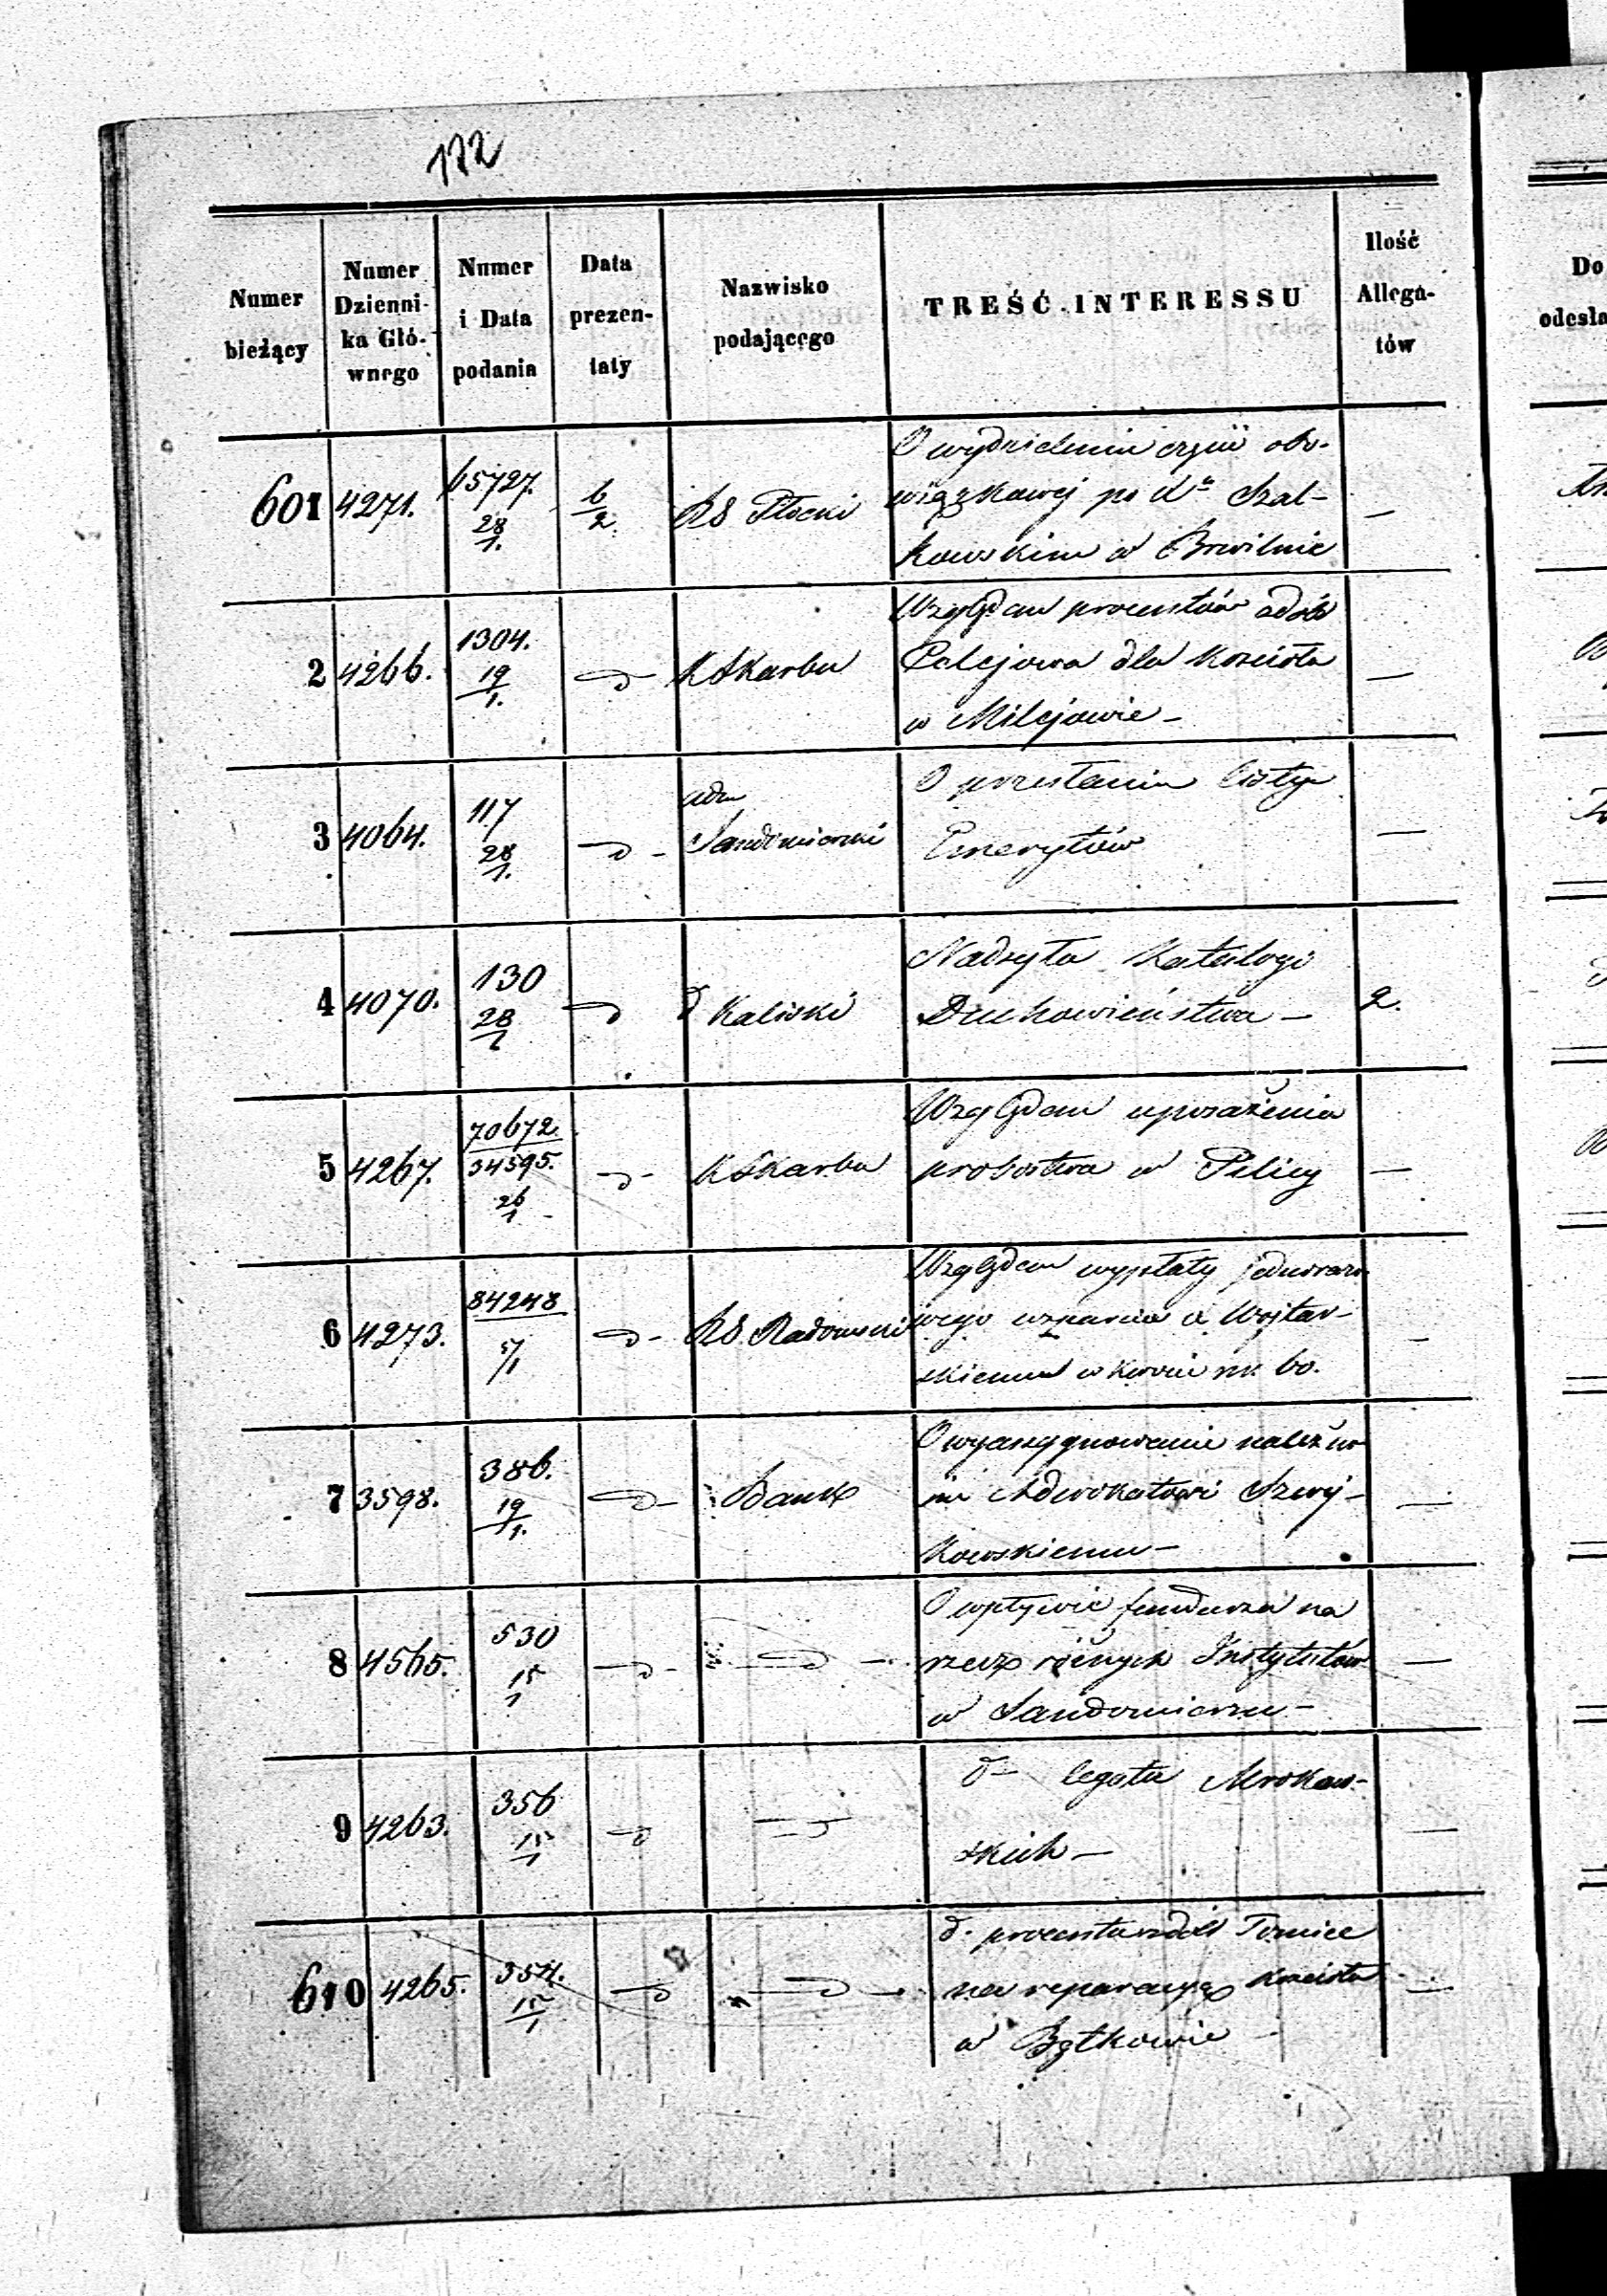 172
Numer bieżący
Numer Dzienni- ka Głó- wnego
Numer i Data podania
Data prezen- taty
Nazwisko podającego
TREŚĆ INTERESSU
Ilość Allega- tów
Do
odesła
601 4271. 65727. 28/1. 6/2. RS Płocki O wydzieleniu części obo-
wiązkowej po Szat-
kowskim w Brwilnie —
2 4266. 1304. 19/1. d KSkarbu Względem procentów od dób
Palejowa dla Kościoła
w Milejowie —
3 4064. 117 28/1. d - adm
Sandomierski O przesłaniu listy
Emerytów —
4 4070. 130 28/1 d d Kaliski Nadsyła Katalogi
Duchowieństwa — 2.
5 4267. 70672. 34595. 26/1 d - KSkarbu Względem uposażenia
probostwa w Pilicy —
6 4273. 84248 5/1 d - RS. Radomski Względem wypłaty jednorazo
wego wsparcia X Wojtar-
skiemu w kwocie rsr. 60. —
7 3598. 386. 19/1. d - Bank O wyasygnowanie należno
Adwokatowi Szwej-
kowskiemu — —
8 4565. 530 15/1 d - d - O wpływie funduszu na
rzecz różnych Instytutów
w Sandomierzu — —
9 4263. 356 15/1 d d d° legatu Mrokow-
skich — —
610 4265. 354. 15/1 d d - d. procentu z dób Tomice
na reparacyą Kościoła
w Bętkowie —